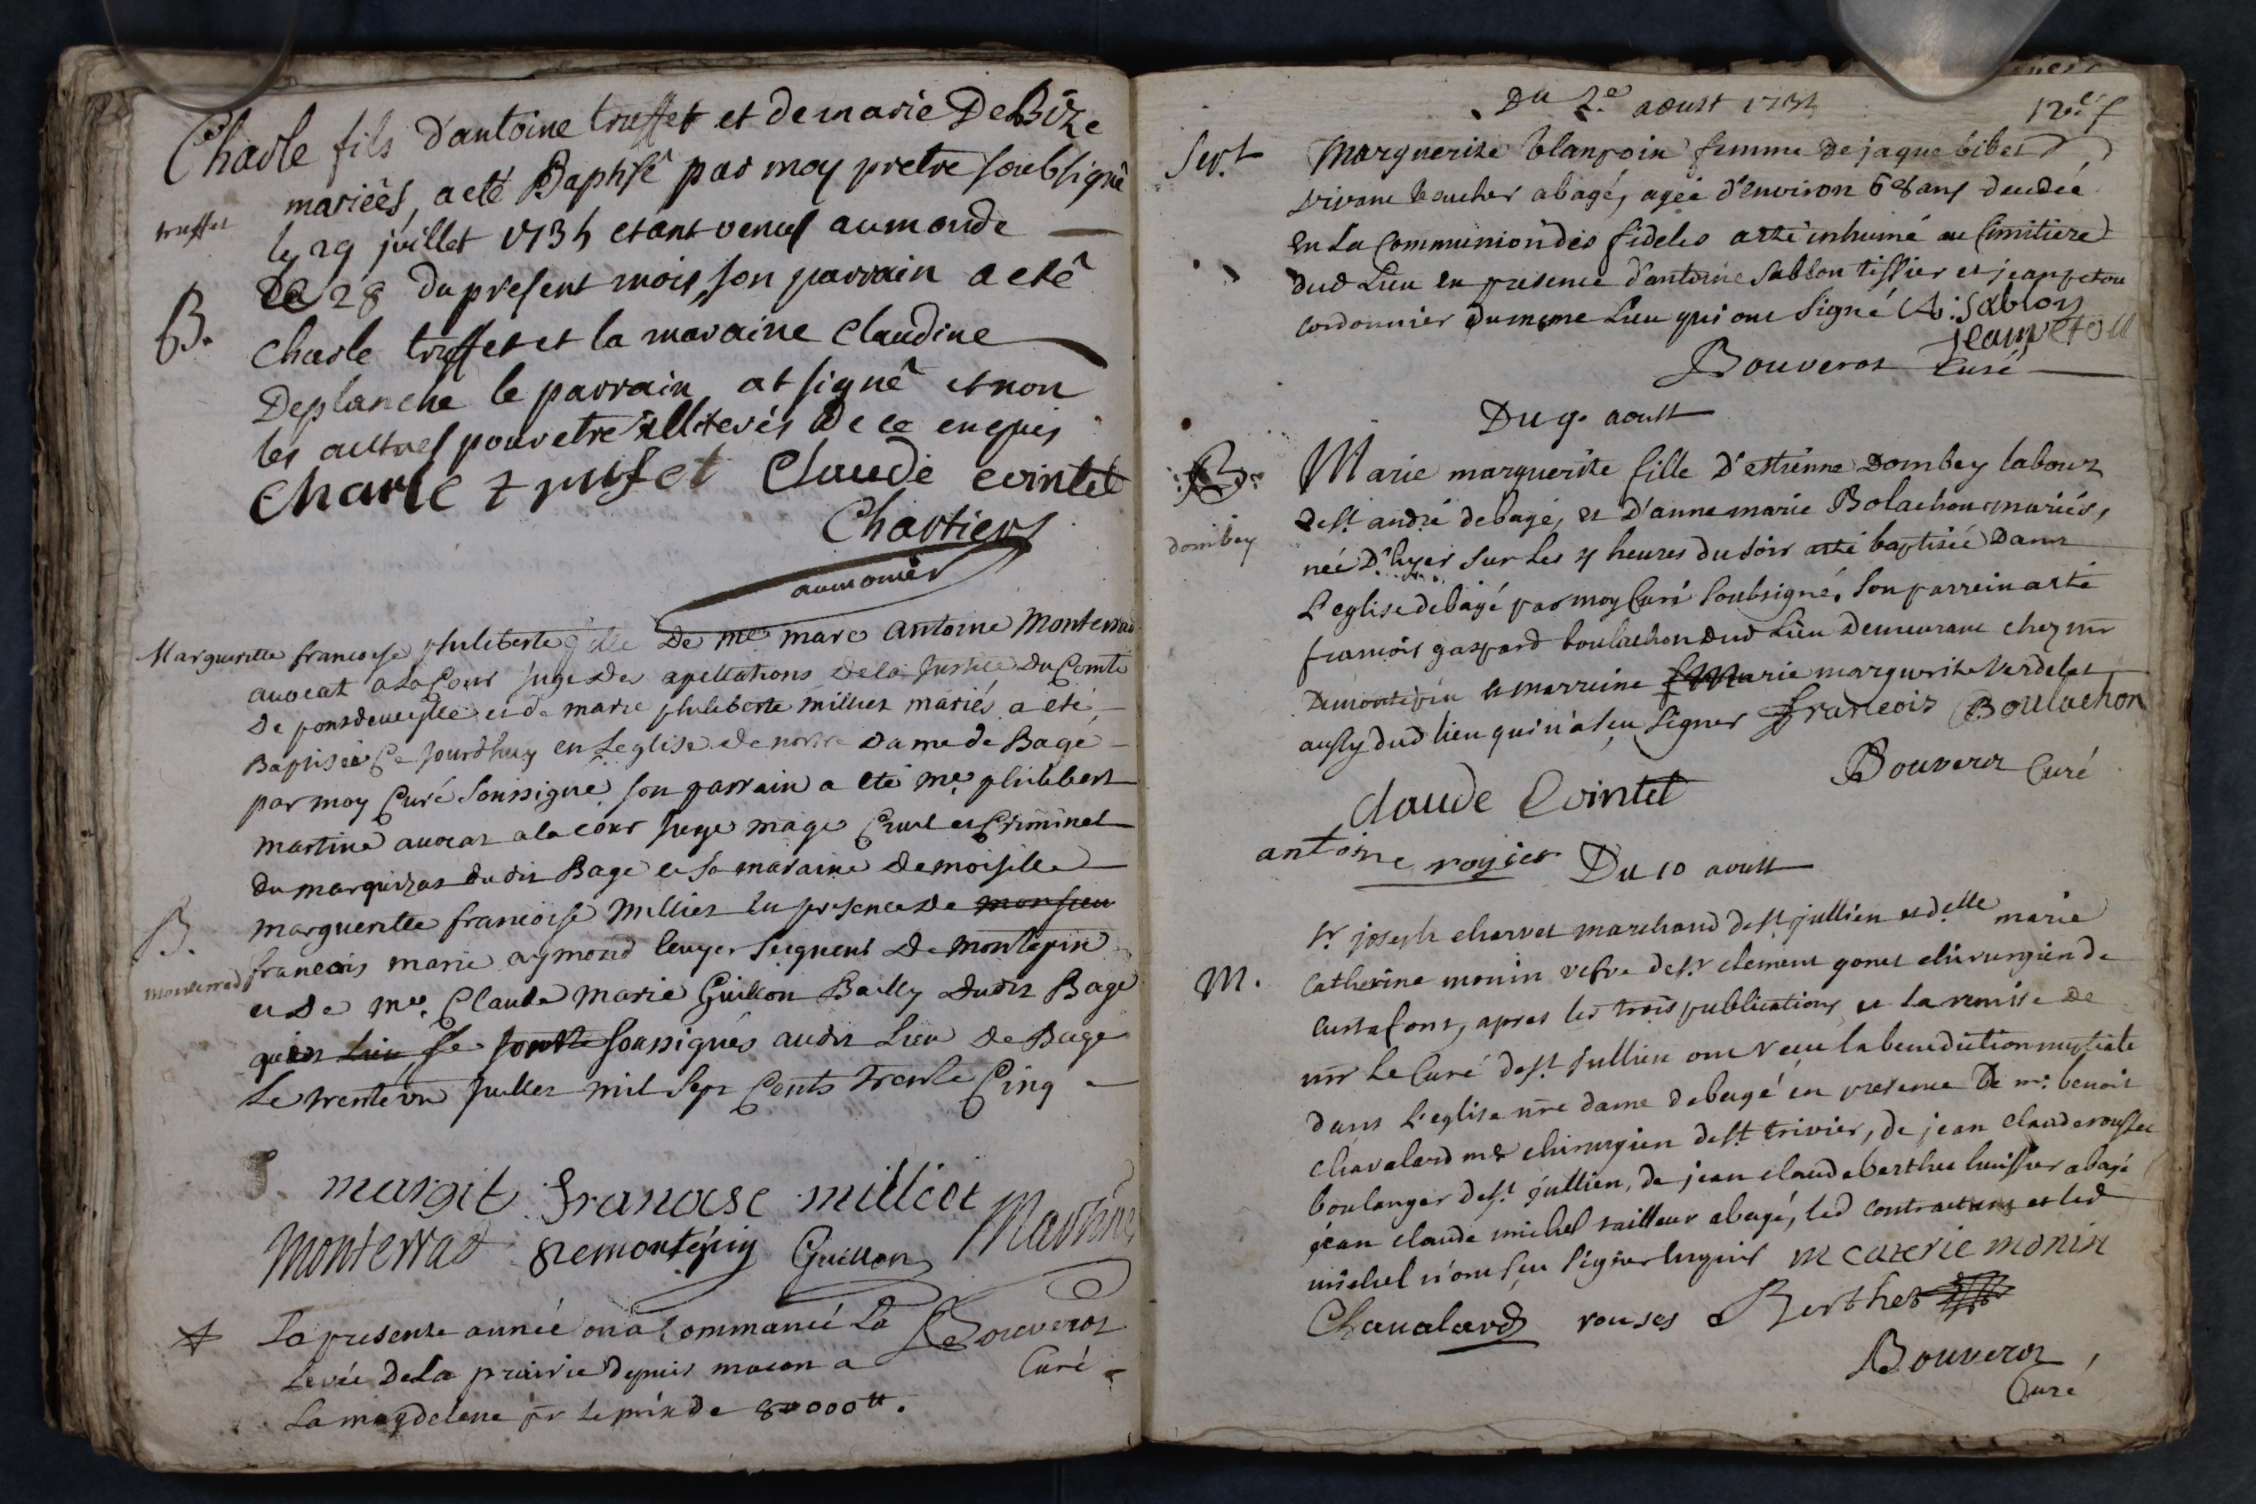 Charle fils d'antoine truffet et de marie DeBize
mariés, a eté Baptisé par moy pretre soubsigné
truffet
le 29 juillet 1735 etant venus au monde
B.
Le 28 du present mois, son parrain a eté
charle truffet et la maraine claudine
Deplanche le parrain at signé et non
les autres pour etre illiterés de ce enquis
Charle trufet Claude Cointet
Chartier
aumonier
Marguerite francoise philiberte fille De me marc antoine Monterrad
avocat a la Cour Juge des apellations de la Justice Du Comté
De pondeveylle et de marie philiberte milliet mariés a eté
Baptisée Ce jourdhuy en Leglise de notre dame de Bagé
par moy Curé soussigné son parrain a eté me. philibert
martine avocat a la cour juge mage Civil et Criminel
du marquizat dudit Bagé et sa maraine demoiselle
B.
marguerite francoise Milliet En presence de monsieur
monterrad
francois marie aymond Ecuyer seigneur De montepin
et de me. Claude Marie Guillon Bailly dudit Bagé
soussignés audit Lieu de Bagé
Le trente un Juillet mil sept Cents trente Cinq
margit franaise milliet
Monterrad Demontépin Guillon Martine
+ La presente année on a Commancé La
Bouverot
Levée de La prairie depuis macon a
Curé
La magdelene pr le prix de 80000 tt.
Du 2.e aoust 1735
12e. f
Sept.
Marguerite blanpoin femme de jaque bibet
vivant boucher a bagé, agée d'environ 68 ans decedée
en La Communion des fideles a esté inhumé au Cimitiere
dud Lieu en presence d'antoine Sablon tissier et jean petou
cordonnier du meme Lieu qui ont signé A: Sablon
jean petou
Bouverot Curé
Du 9. aoust
B.
Marie marguerite fille d'estienne Dombey labourr
de st. andré de bagé, et D'anne marie Bolachon mariés,
dombey
née D'hyer sur les 4 heures du soir a esté baptisée Dans
L'eglise de bagé par moy Curé soubsigné. Son parrein a esté
francois gaspard boulachon dud Lieu demeurant chez mr
De montepin la marreine Marie marguerite Verdelet
aussy dud lieu qui n'a sçu signer francois Boulachon
Bouverot Curé
Claude Cointet
antoine royier Du 10 aoust
Sr. joseph charvet marchand de st. jullien et delle marie
M.
Catherine monin vefve de sr. clement gonet chirurgien de
Curtafont, apres les trois publications et la remise de
mr Le Curé de st. Jullien ont receu la benediction nuptiale
dans L'eglise nre dame de bagé en presence De mr. benoit
chavalard me chirurgien de st. trivier, de jean claude rousset
boulanger de st. jullien, de jean claude berthet huissier a bagé
jean claude michel tailleur a bagé, led contractant et led
michel n'ont sçu signer Enquis m caterie monin
Chavalard rouses Berthet
Bouverot,
Curé